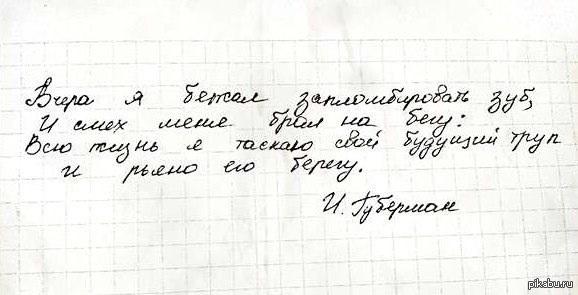 Вчера я бежал запломбировать зуб,
И смех меня брал на бегу:
Всю жизнь я таскаю свой будущий труп
и рьяно его берегу.
И. Губерман
pikabu.ru